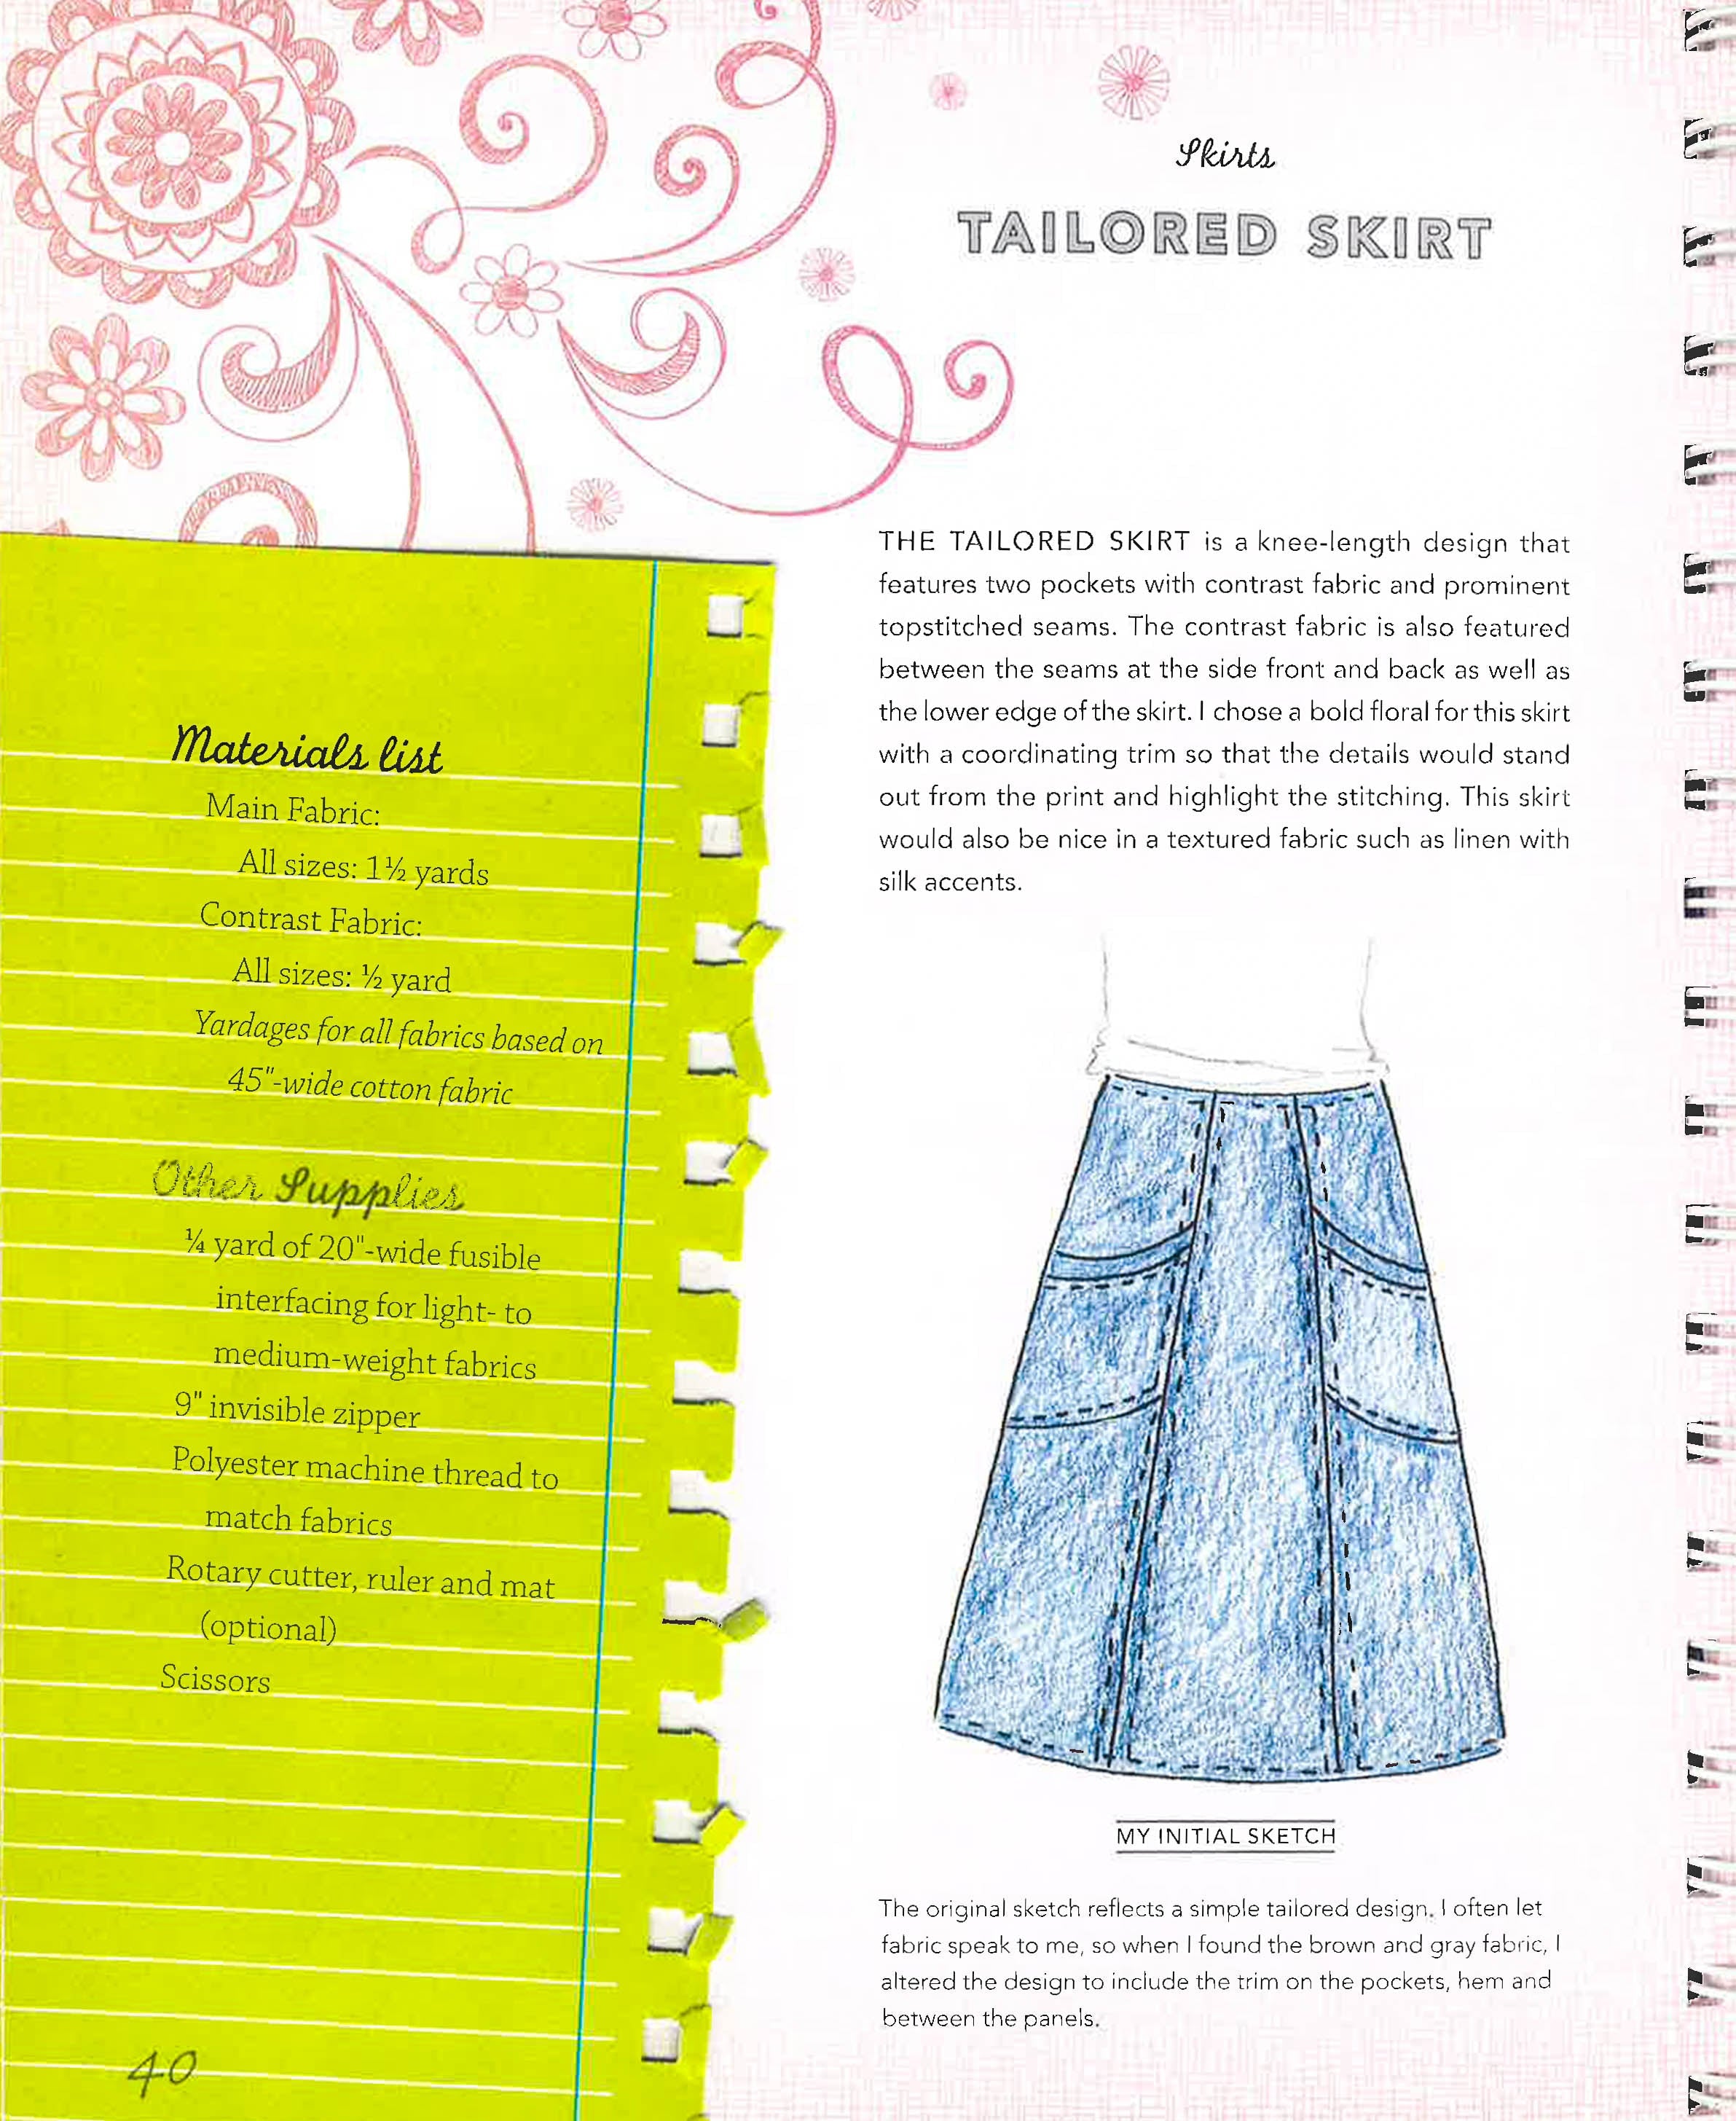 Skirts
TAILORED SKIRT
THE TAILORED SKIRT is a knee-length design that
features two pockets with contrast fabric and prominent
topstitched seams. The contrast fabric is also featured
between the seams at the side front and back as well as
the lower edge of the skirt. I chose a bold floral for this skirt
with a coordinating trim so that the details would stand
out from the print and highlight the stitching. This skirt
would also be nice in a textured fabric such as linen with
silk accents.
Materials list
Main Fabric:
All sizes: 1½ yards
Contrast Fabric:
All sizes: ½ yard
Yardages for all fabrics based on
45"-wide cotton fabric
Other Supplies
¼ yard of 20"-wide fusible
interfacing for light- to
medium-weight fabrics
9" invisible zipper
Polyester machine thread to
match fabrics
Rotary cutter, ruler and mat
(optional)
Scissors
MY INITIAL SKETCH
The original sketch reflects a simple tailored design. I often let
fabric speak to me, so when I found the brown and gray fabric, I
altered the design to include the trim on the pockets, hem and
between the panels.
40